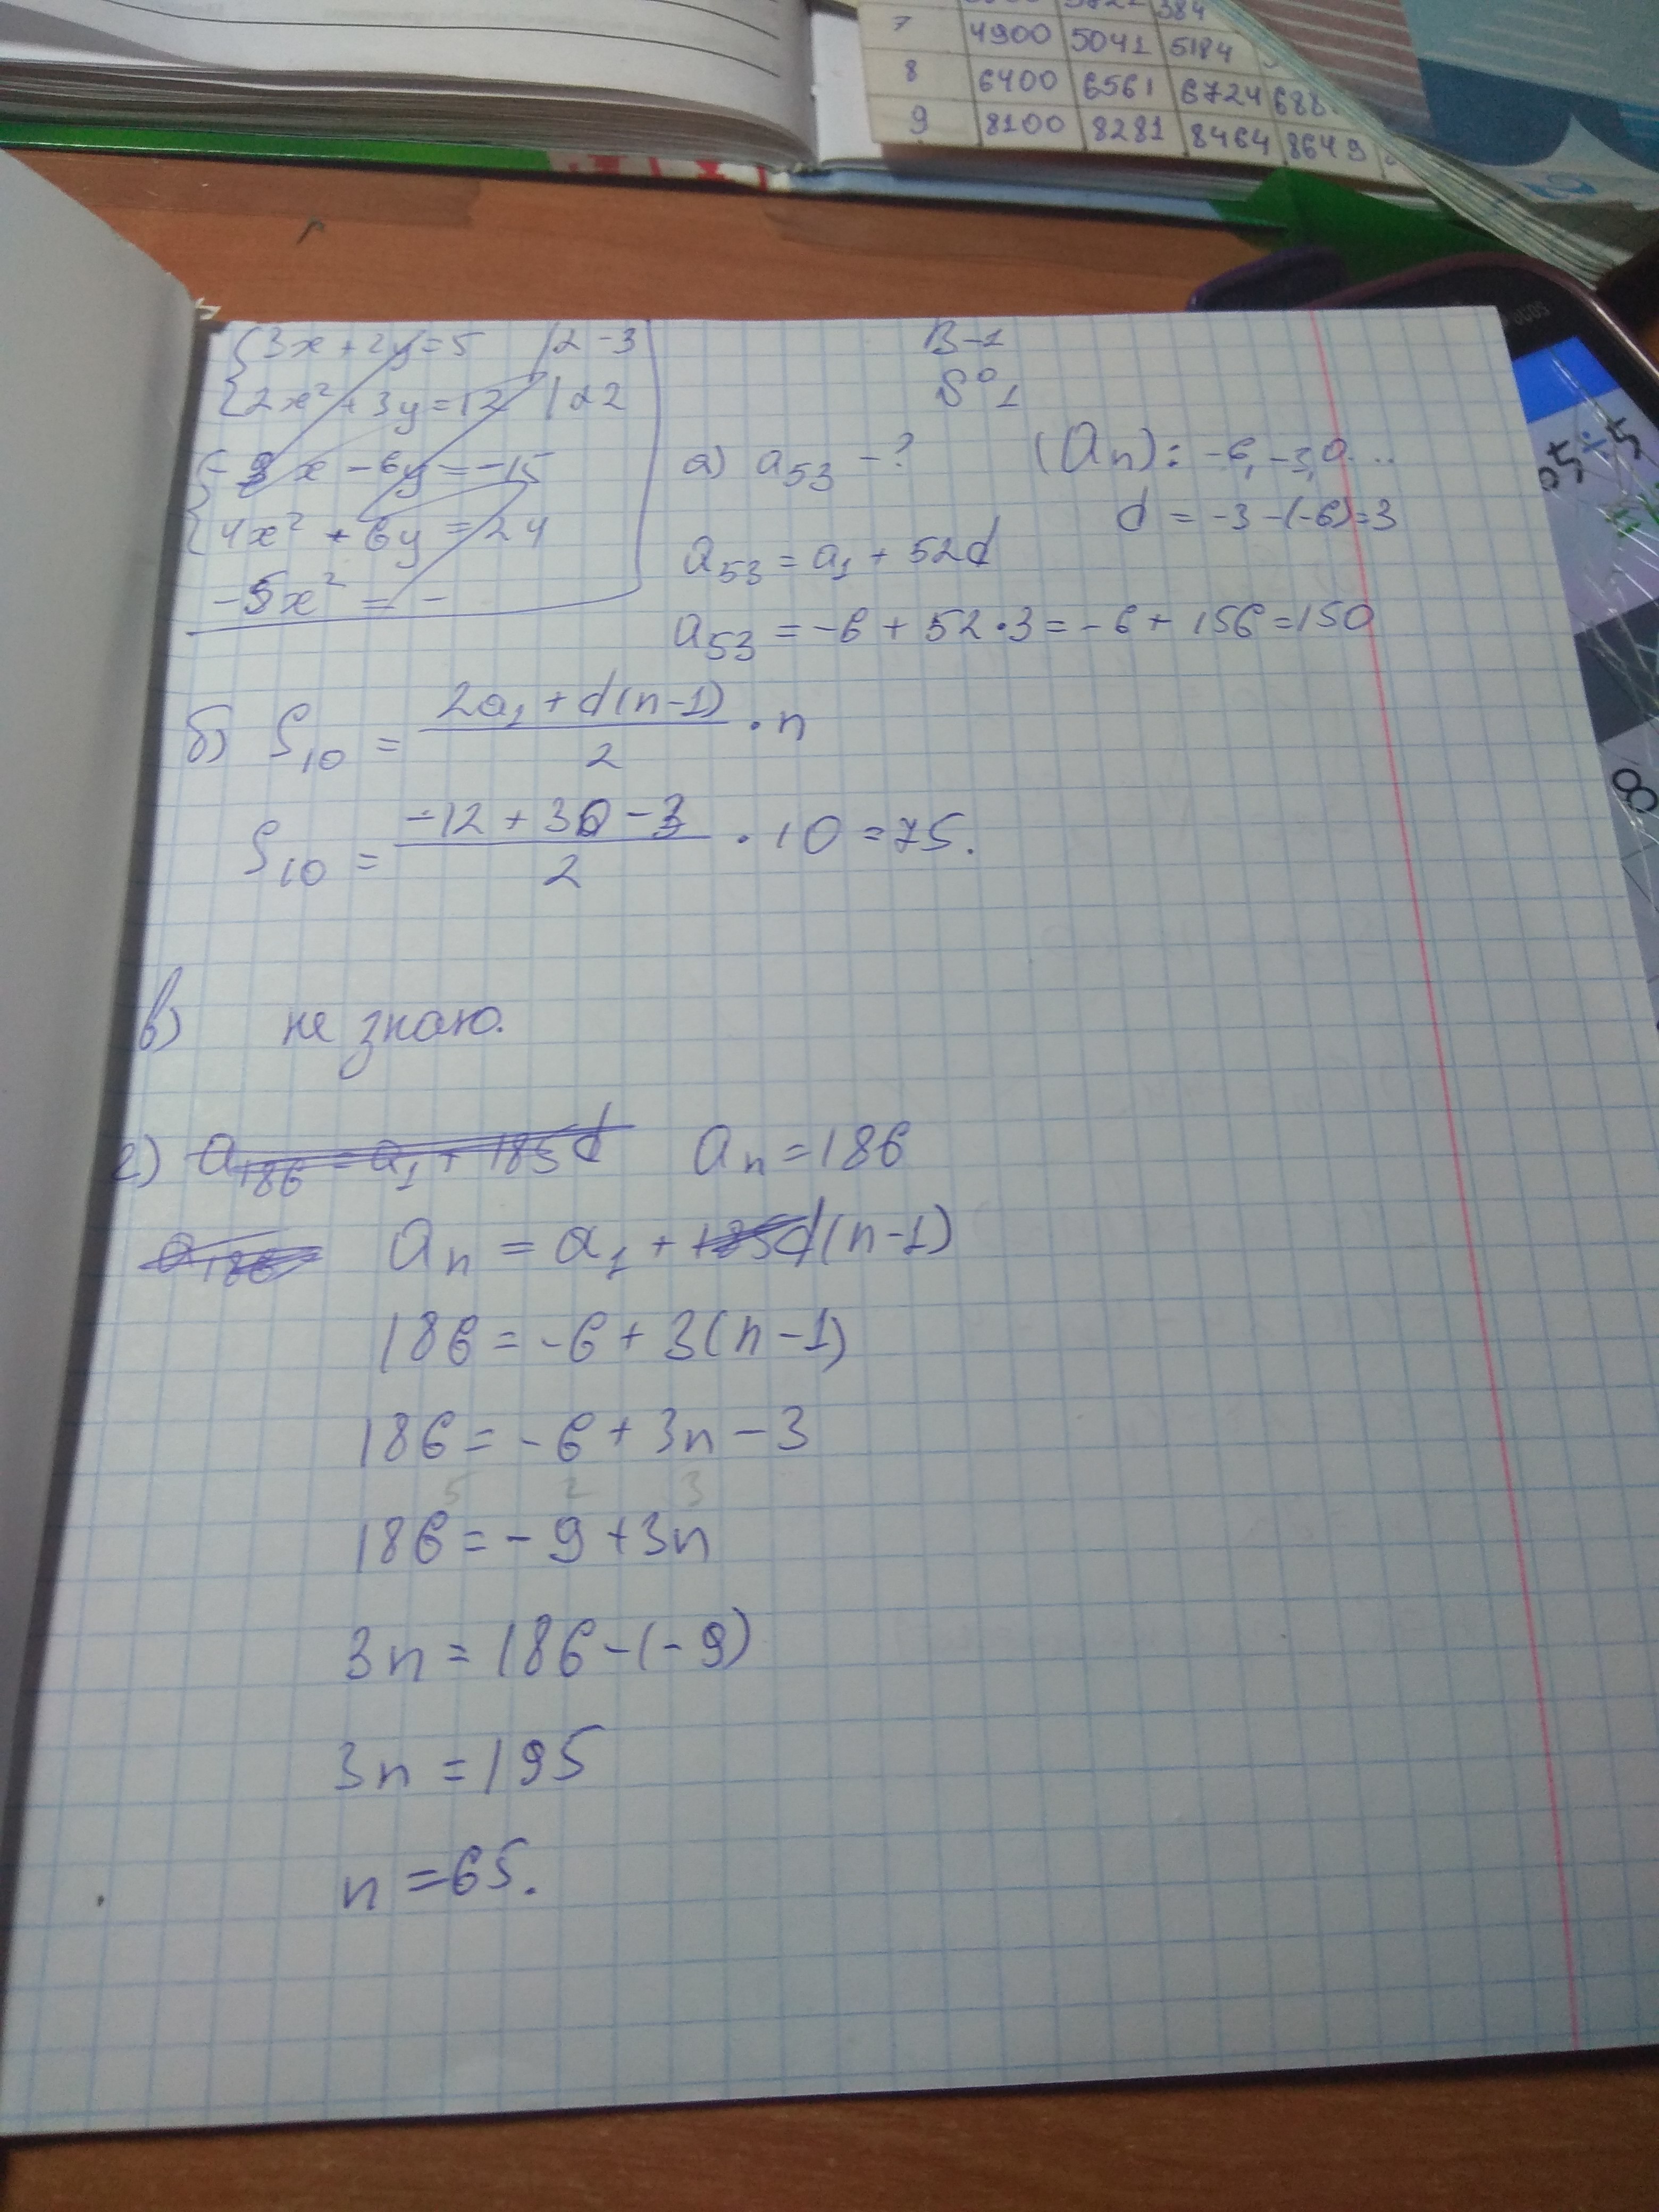 7 4900 5041 5184
8 6400 6561 6724 688
9 8100 8281 8464 8649
{3x+2y=5 |2 -3
{2x²+3y=12 |·2
{-9x-6y=-15
{4x²+6y=24
-5x²=-
В-1
№1
а) a₅₃ -? (aₙ): -6, -3, 0...
d = -3-(-6)=3
a₅₃ = a₁ + 52d
a₅₃ = -6 + 52·3 = -6 + 156 = 150
б) S₁₀ = (2a₁ + d(n-1))/2 · n
S₁₀ = (-12 + 30 - 3)/2 · 10 = 75.
в) не знаю.
г) a₁₈₆ = a₁ + 185d aₙ = 186
a₁₈₆ aₙ = a₁ + 185d(n-1)
186 = -6 + 3(n-1)
186 = -6 + 3n - 3
186 = -9 + 3n
3n = 186-(-9)
3n = 195
n = 65.